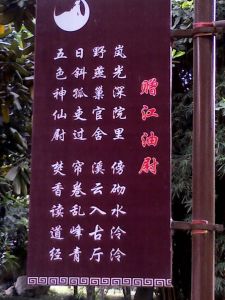 赠江油尉
岚光深院里 傍砌水泠泠
野燕巢官舍 溪云入古厅
日斜孤吏过 帘卷乱峰青
五色神仙尉 焚香读道经